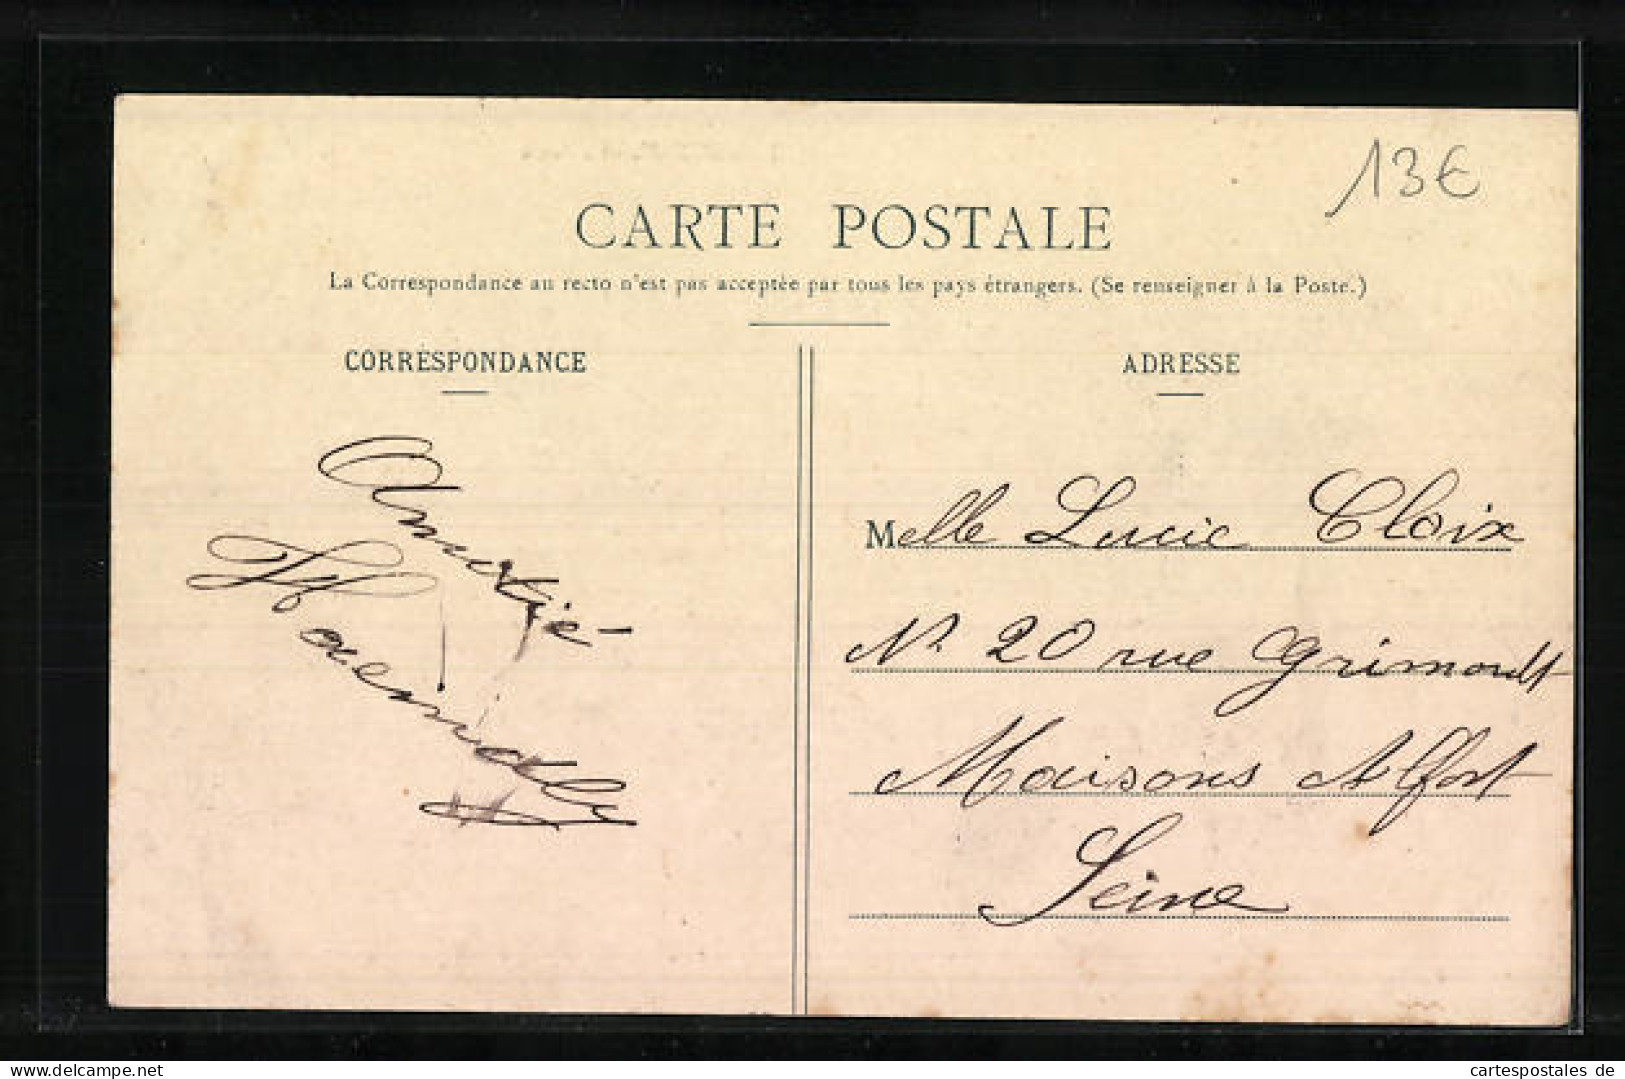 13€
CARTE POSTALE
La Correspondance au recto n'est pas acceptée par tous les pays étrangers. (Se renseigner à la Poste.)
CORRESPONDANCE
ADRESSE
Amitié
Melle Lucie Cloix
No 20 rue Grimoult
Maisons Alfort
Seine
www.delcampe.net
cartespostales de